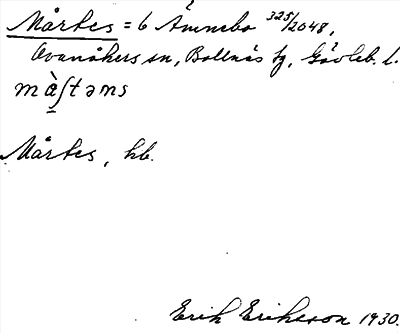 Mårtes = 6 Ämnebo 325/2048,
Ovanåkers sn, Bollnäs tg, Gävleb. l.
mὰʃtəns
Mårtes, hb.
Erik Eriksson 1930.